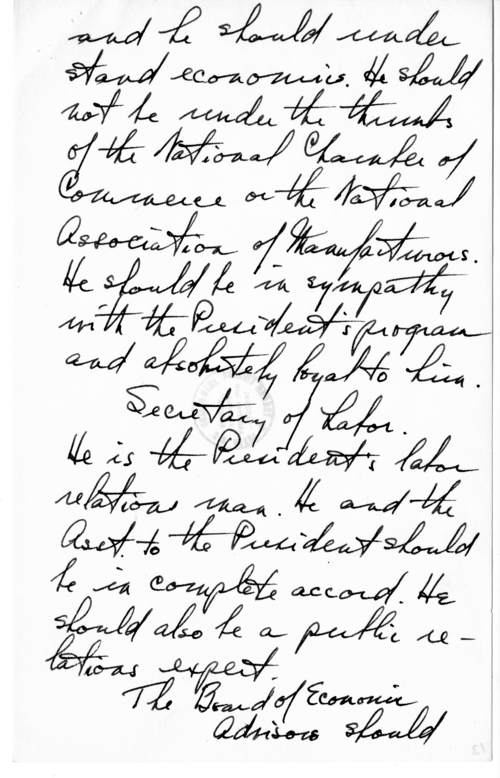 and he should under
stand economics. He should
not be under the thumbs
of the National Chamber of
Commerce or the National
Association of Manufacturors.
He should be in sympathy
with the President's program
and absolutely loyal to him.
Secretary of Labor.
He is the President's labor
relations man. He and the
Asst. to the President should
be in complete accord. He
should also be a public re-
lations expert.
The Board of Economic
Advisors should